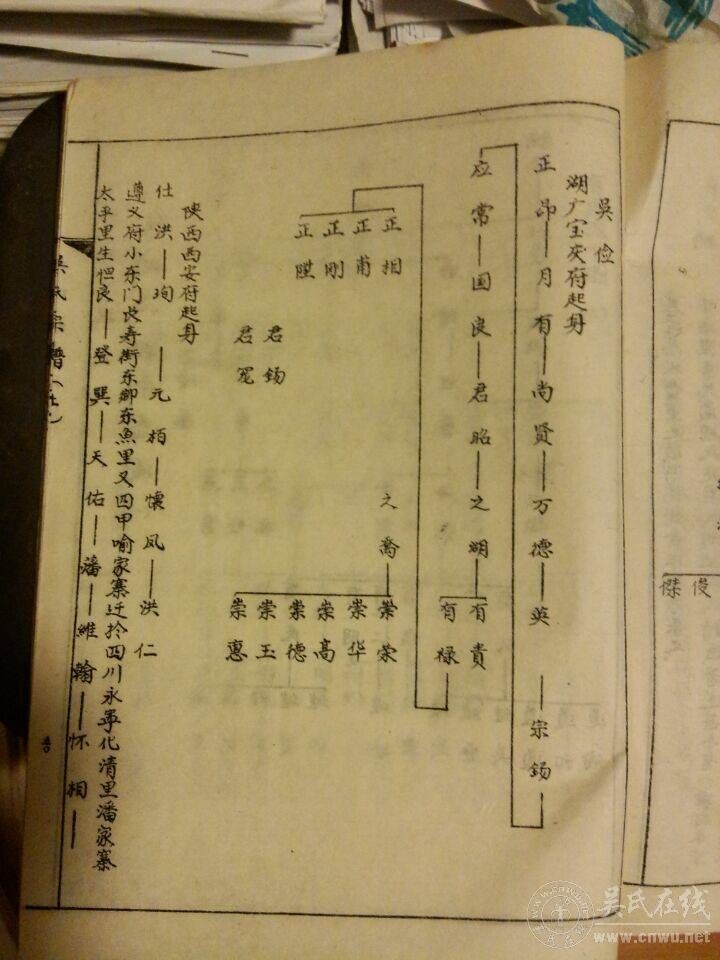 吳俭
湖广宝庆府起身
正昂—月有—尚贤—万德—英—宗錫
应常—国良—君昭—之湖
有貴
有禄
正相
正甫
正剛
君錫
君寵
之喬
崇荣
崇华
崇高
崇德
崇玉
崇惠
陕西西安府起身
仕洪—珣—元栢—懷凤—洪仁
遵义府小东门良寿街东御东魚里又四甲喻家寨迁於四川永寧化清里潘家寨
太平里生恒良—登巽—天佑—潘—維翰—怀相
吳氏宗譜
傑
俊
吴氏在线
www.cnwu.net